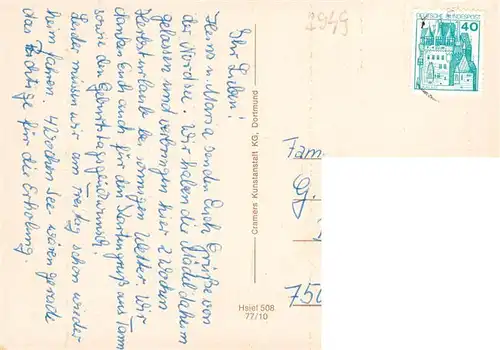 Ihr Lieben!
Hans u. Maria senden Euch Grüße von
der Nordsee. Wir haben die Mädel daheim
gelassen und verbringen hier 2 Wochen
Herbsturlaub bei sonnigen Wetter. Wir
danken Euch auch für den Kartengruß aus Tann
sowie den Geburtstagsglückwunsch.
Leider müssen wir am Freitag schon wieder
heim fahren. 4 Wochen See wären gerade
das Richtige für die Erholung.
Cramers Kunstanstalt KG, Dortmund
Hsief 508
77/10
2949
DEUTSCHE BUNDESPOST
40
Fam
G.
750